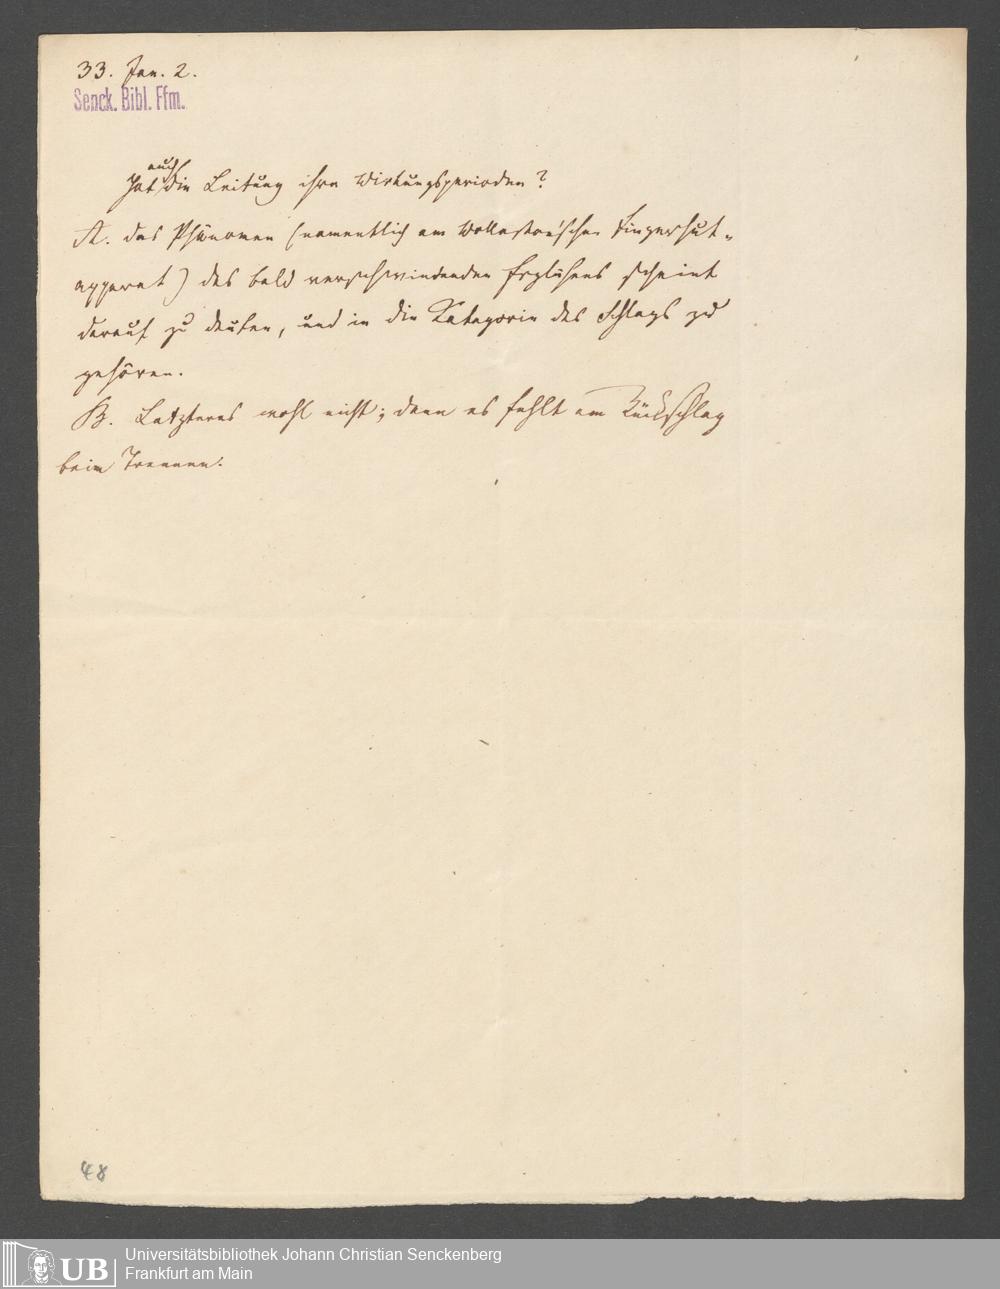 33. Jan. 2.
Senck. Bibl. Ffm.
Hat auch die Leitung ihre Wirkungsperioden?
A. das Phänomen (namentlich am Wollaston'schen Fingerhut-
apparat) des bald verschwindenden Erglühens scheint
darauf zu deuten, und in die Kategorie des Schlags zu
gehören.
B. Letzteres wohl nicht; denn es fehlt am Rückschlag
beim Trennen.
48
UB
Universitätsbibliothek Johann Christian Senckenberg
Frankfurt am Main